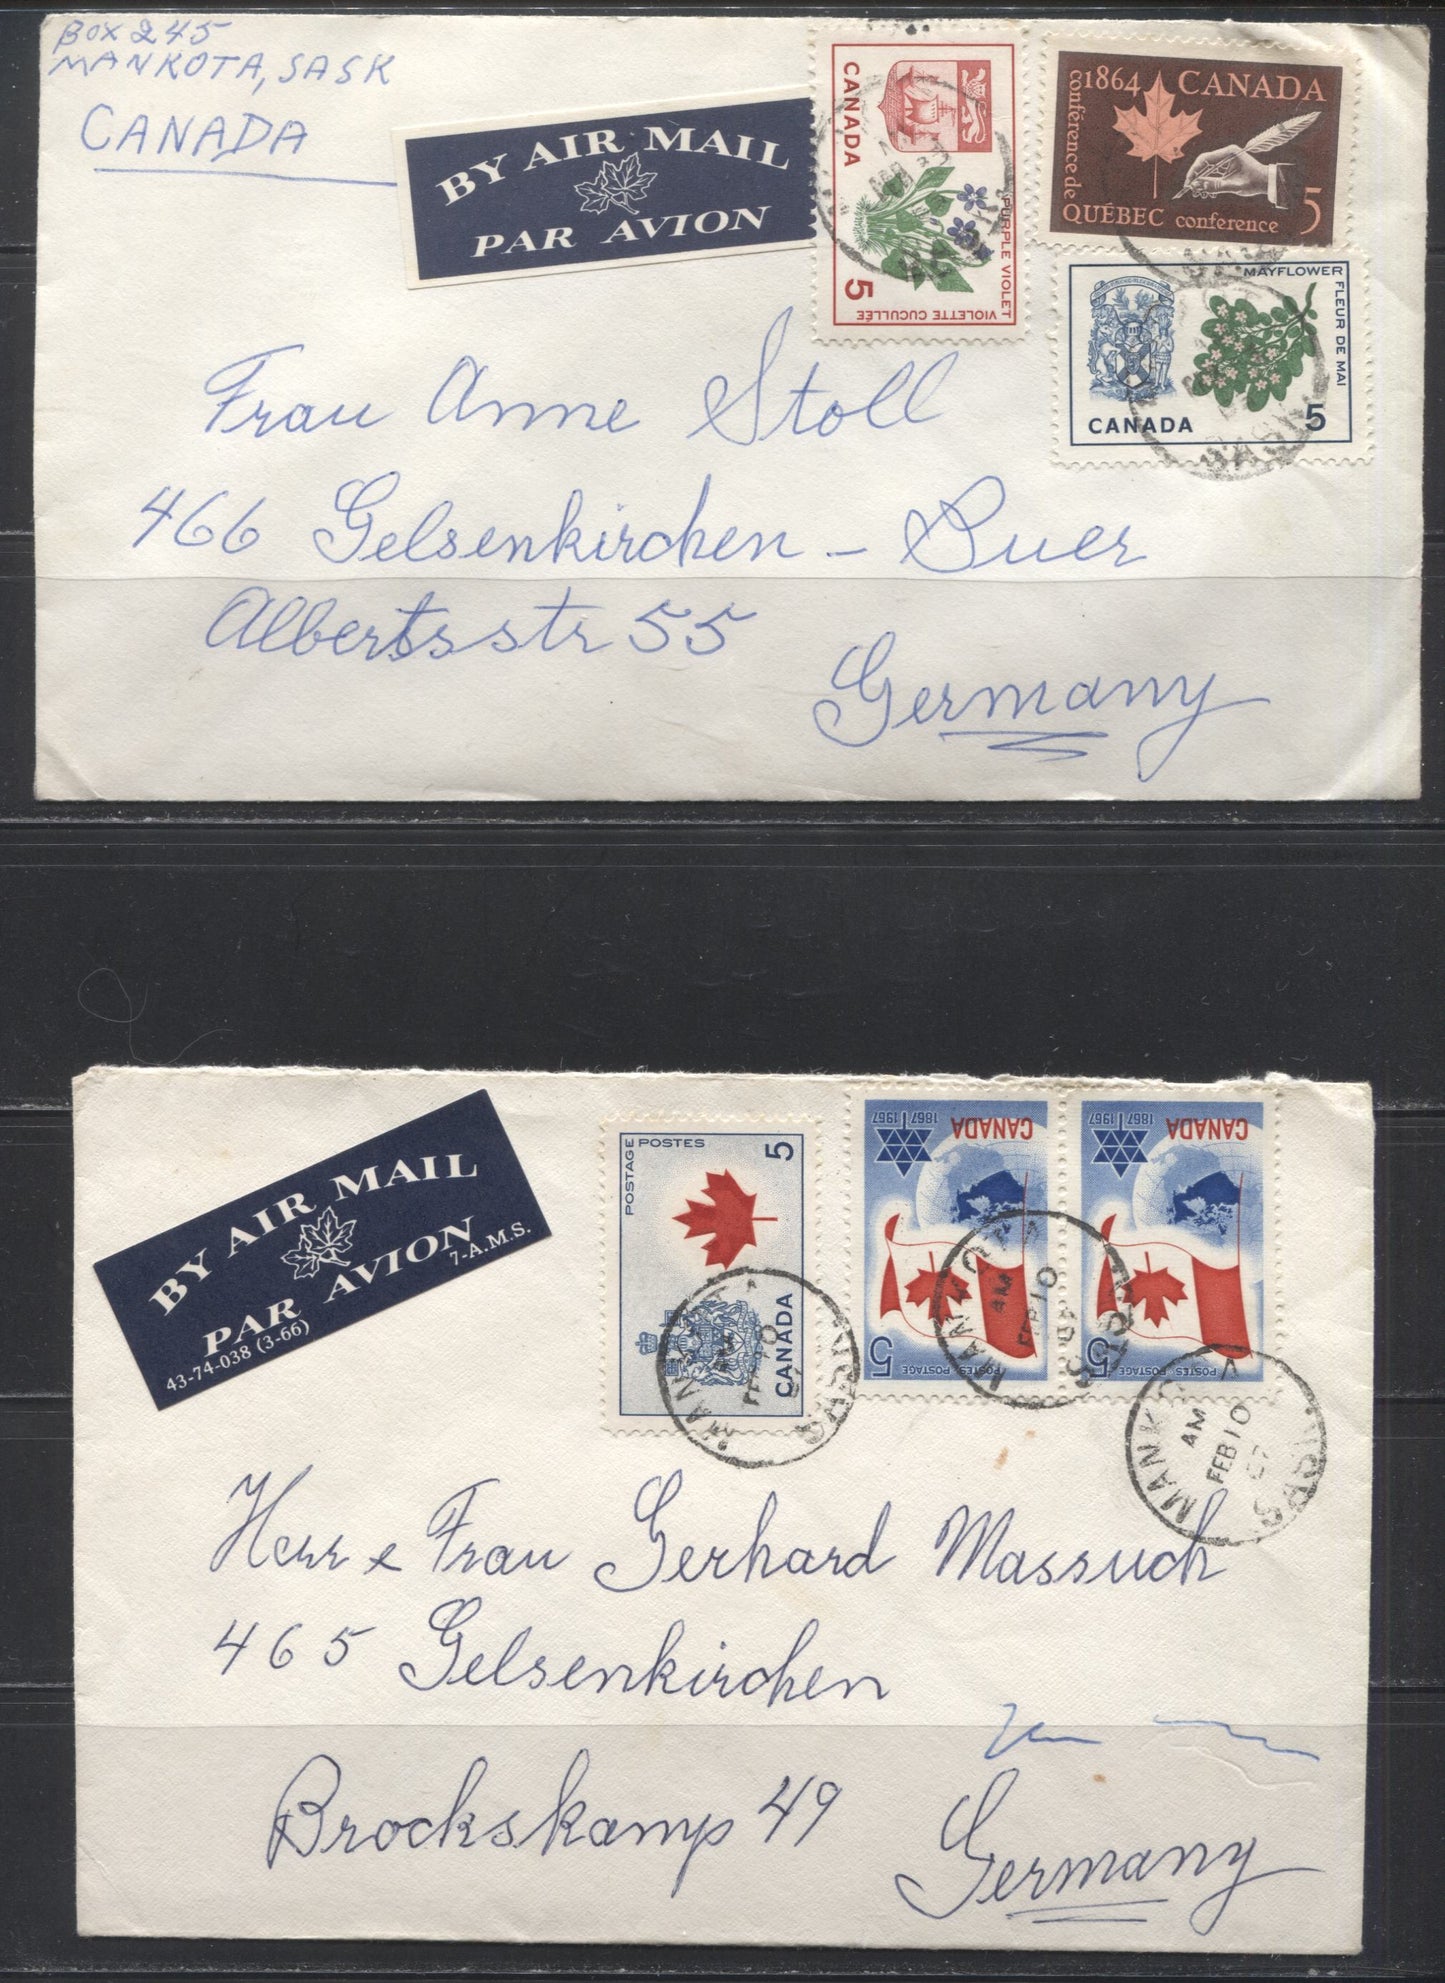 BOX 245
MANKOTA, SASK
CANADA
BY AIR MAIL
PAR AVION
CANADA
5
PURPLE VIOLET
VIOLETTE CUCULLÉE
1864 CANADA
conférence de
QUÉBEC conference 5
MAYFLOWER
FLEUR DE MAI
CANADA 5
SASK
Frau Anne Stoll
466 Gelsenkirchen - Buer
Albertsstr 55
Germany
BY AIR MAIL
PAR AVION
7-A.M.S.
43-74-038 (3-66)
POSTAGE POSTES
5
CANADA
1867 1967
CANADA
5
POSTES POSTAGE
1867 1967
CANADA
5
POSTES POSTAGE
MANKOTA
AM
FEB 10
67
SASK
MANKOTA
AM
FEB 10
67
SASK
MANKOTA
AM
FEB 10
67
SASK
Herr & Frau Gerhard Massuch
465 Gelsenkirchen
Brockskamp 49
Germany